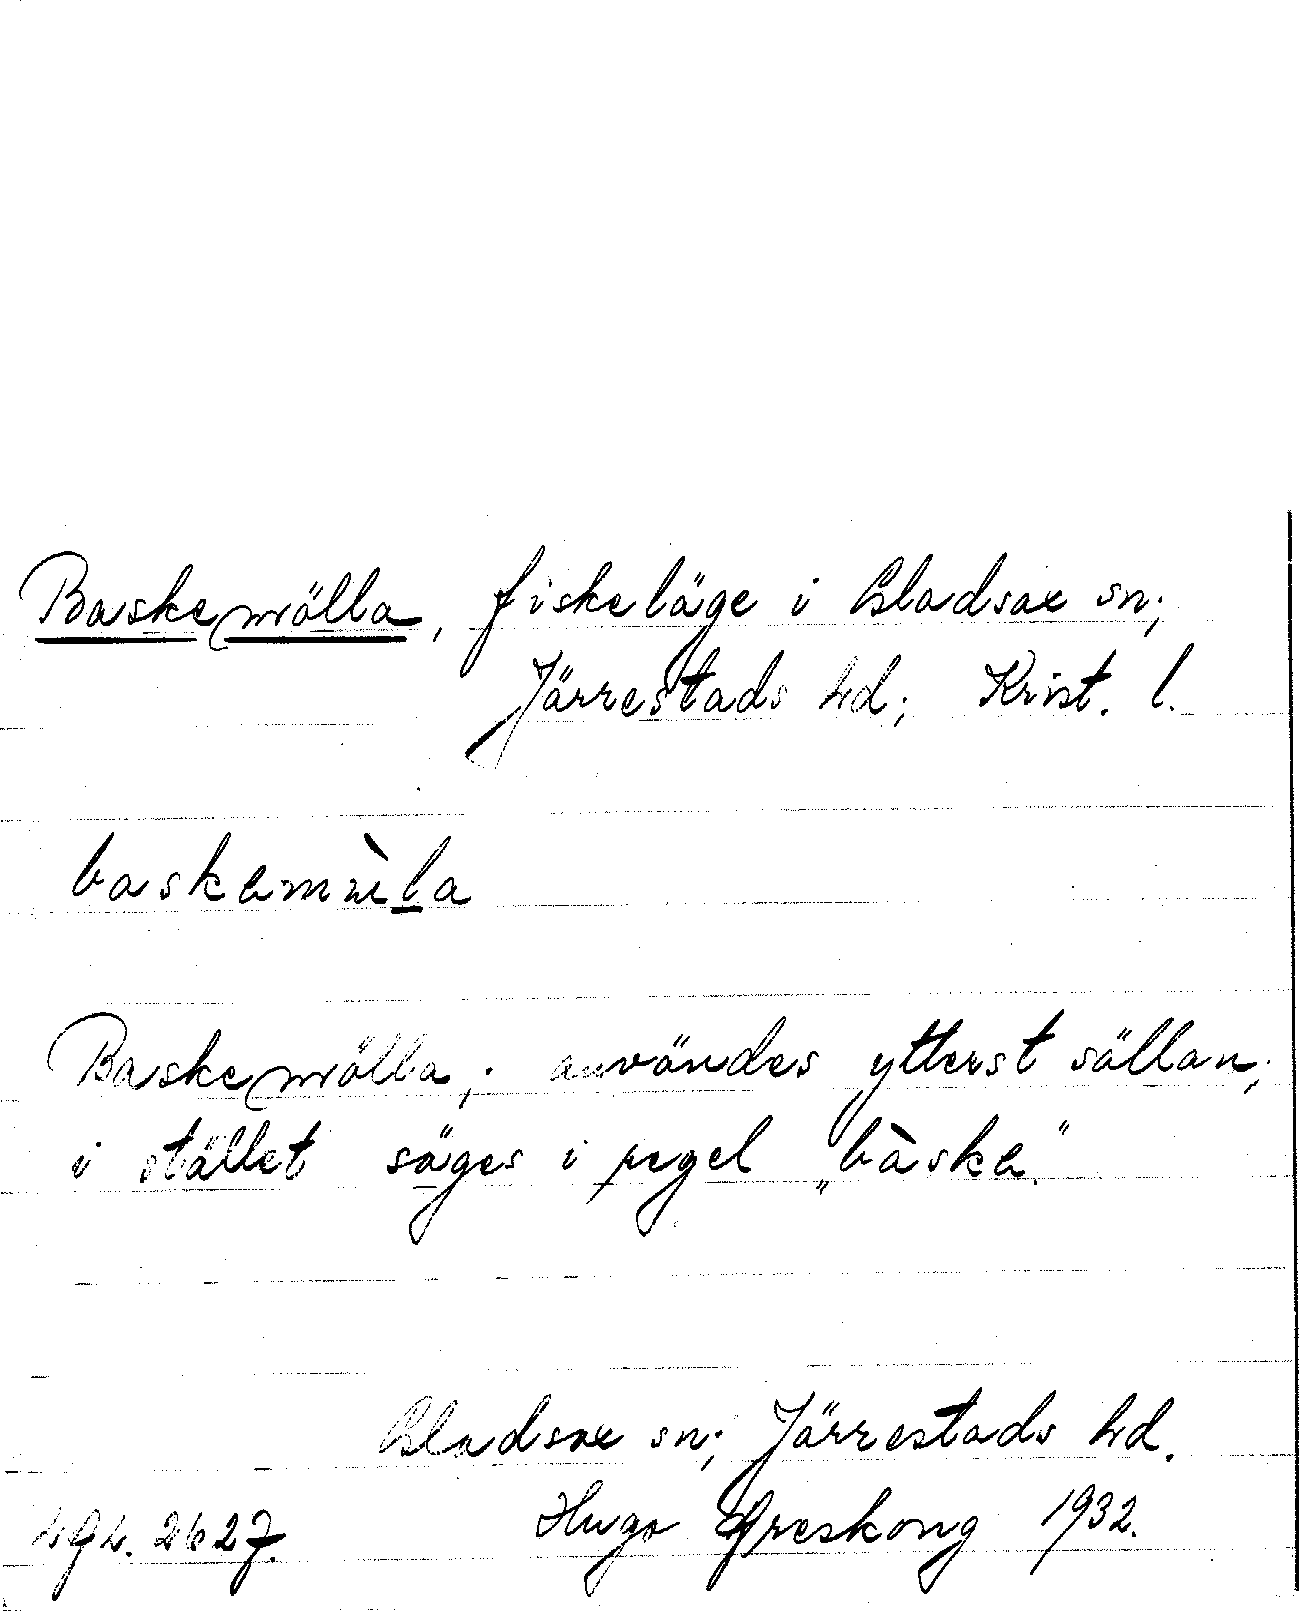 Baskemölla, fiskeläge i Gladsax sn;
Järrestads hd; Krist. l.
Baskemölla; användes ytterst sällan;
i stället säges i regel „bàske."
Gladsax sn; Järrestads hd.
Hugo Areskoug 1932.
2627.